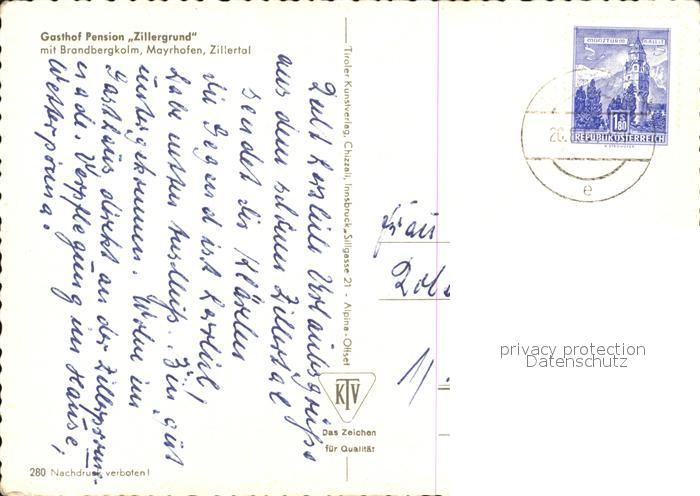 Gasthof Pension „Zillergrund“
mit Brandbergkolm, Mayrhofen, Zillertal
Recht herzliche Urlaubsgrüße
aus dem schönen Zillertal
sendet dir
die Gegend ist herrlich!
Habe netten Anschluß. Bin gut
untergekommen. Wohne im
Gasthaus direkt an der
Verpflegung im Hause,
Wetter prima.
280 Nachdruck verboten!
Tiroler Kunstverlag, Chizzali, Innsbruck, Sillgasse 21 - Alpina-Offset
KTV
Das Zeichen
für Qualität
MÜNZTURM HALL I. T.
S
1.80
REPUBLIK ÖSTERREICH
26.
e
Frau
privacy protection
Datenschutz